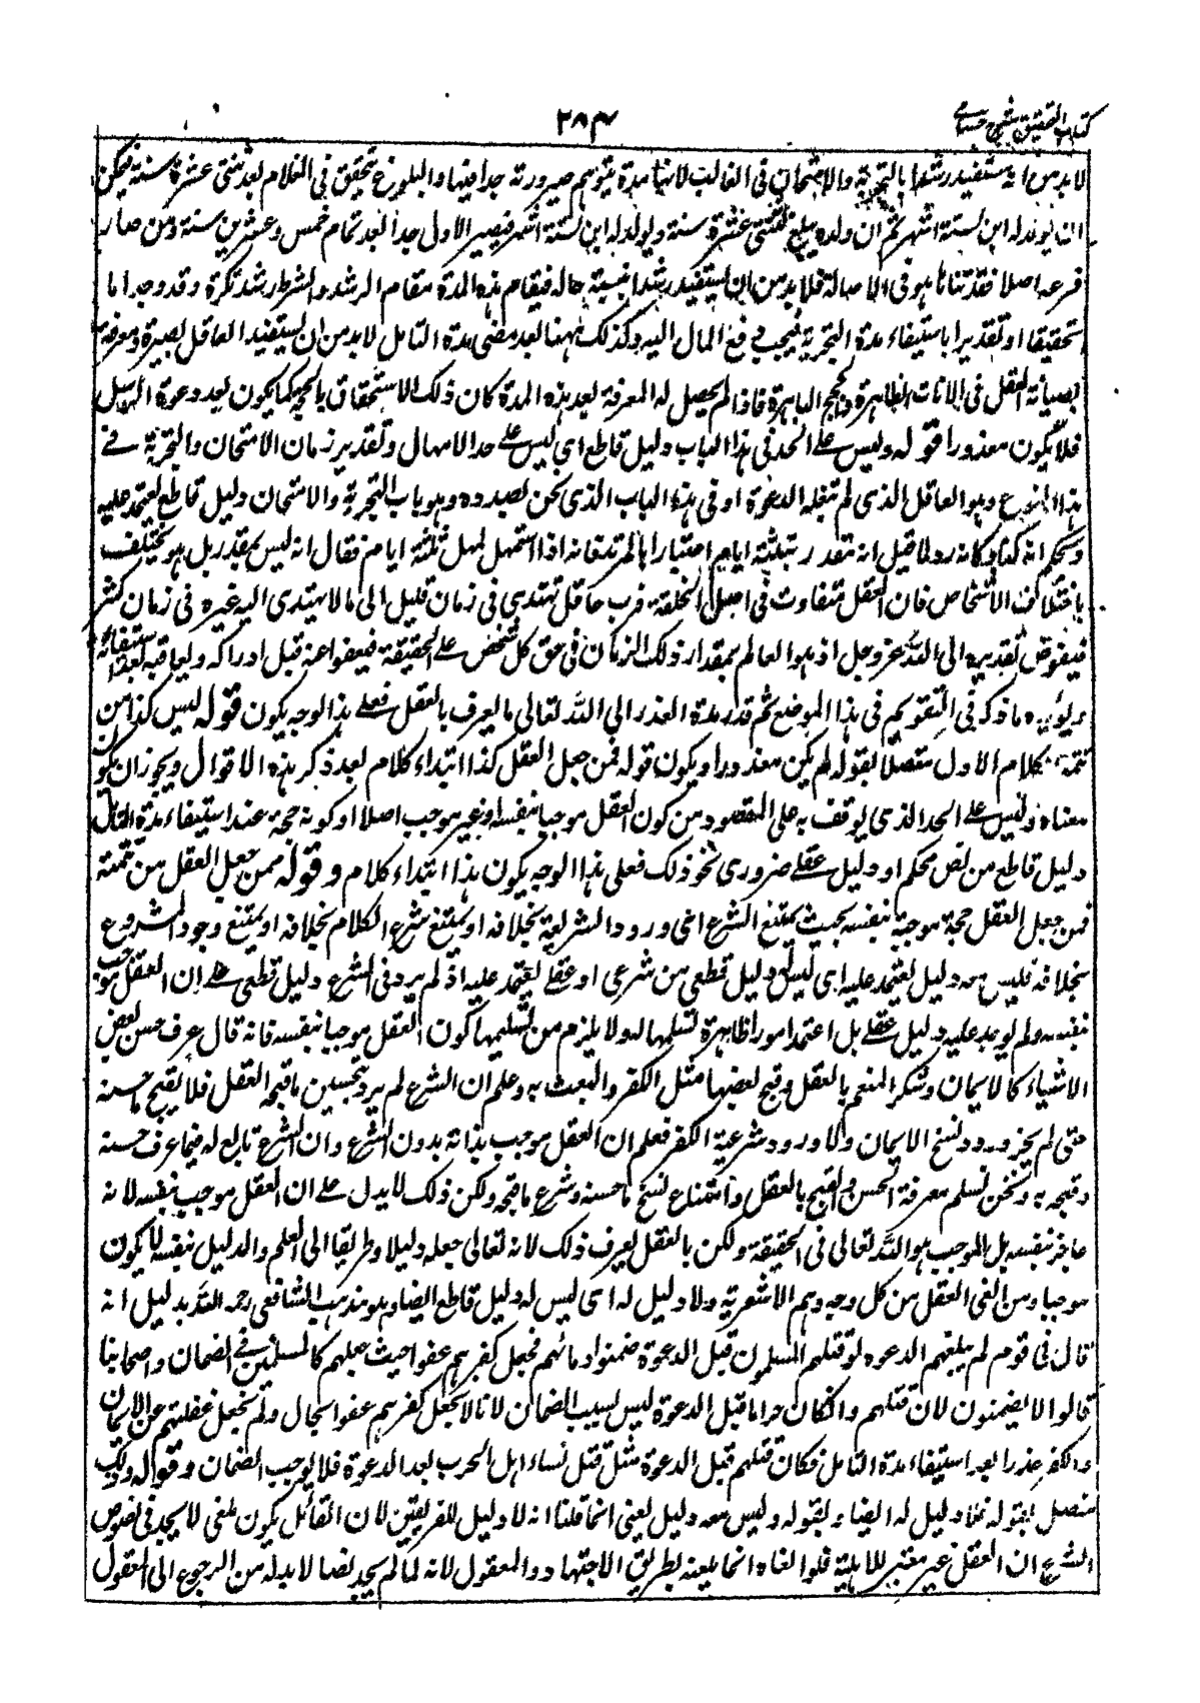 كتاب التحقيق شرح حسامي
٣٨٣
لا بد من انه يستفيد رشدا بالتجربة والامتحان في الغالب لانها مدة يتوهم صيرورته جدا فيها والبلوغ يتحقق في الغلام بعد ثنتي عشرة سنة فيمكن
ان يولد له ابن لستة اشهر ثم ان ولده يبلغ لثنتي عشرة سنة ويولد له ابن لستة اشهر فيصير الاول جدا بعد تمام خمس وعشرين سنة ومن صار
فرعه اصلا فقد تناهى هو في الاصالة فلا بد من ان يستفيد رشدا بنسبة حاله فيقام هذه المدة مقام الرشد والشرط رشد نكرة وقد وجد اما
تحقيقا او تقديرا باستيفاء مدة التجربة فيجب دفع المال اليه وكذلك ههنا بعد مضي مدة التامل لا بد من ان يستفيد العاقل بصيرة ومعرفة
بصيانة العقل في الايات الظاهرة والحجج الباهرة فاذا لم يحصل له المعرفة بعد هذه المدة كان ذلك الاستحقاق بالحجة كما يكون بعد دعوة الرسل
فلا يكون معذورا قوله وليس على الحد في هذا الباب دليل قاطع اي ليس على حد الامهال وتقدير زمان الامتحان والتجربة في
هذا النوع وهو العاقل الذي لم تبلغه الدعوة او في هذا الباب الذي نحن بصدده وهو باب التجربة والامتحان دليل قاطع يعتمد عليه
ويحكم به كانه رد لما قيل انه مقدر بثلثة ايام اعتبارا بالمرتد فانه اذا استمهل يمهل ثلثة ايام فقال انه ليس بمقدر بل هو يختلف
باختلاف الاشخاص فان العقل متفاوت في اصل الخلقة فرب عاقل يهتدي في زمان قليل الى ما لا يهتدي اليه غيره في زمان كثير
فيفوض تقديره الى الله عز وجل اذ هو العالم بمقدار ذلك الزمان في حق كل شخص على الحقيقة فيعفو عنه قبل ادراكه ويعاقبه بعد استيفائه
ويؤيده ما ذكر في التقويم في هذا الموضع ثم قدر مدة العذر الى الله تعالى ما يعرف بالعقل فعلى هذا الوجه يكون قوله ليس كذا من
تتمة الكلام الاول متصلا بقوله لم يكن معذورا ويكون قوله فمن جعل العقل كذا ابتداء كلام بعد ذكر هذه الاقوال ويجوز ان يكون
معناه وليس على الحد الذي يوقف به على المقصود من كون العقل موجبا بنفسه او غير موجب اصلا او كونه حجة عند استيفاء مدة التامل
دليل قاطع من نص محكم او دليل عقلي ضروري نحو ذلك فعلى هذا الوجه يكون هذا ابتداء كلام وقوله فمن جعل العقل من تتمته
فمن جعل العقل حجة موجبة بنفسه بحيث يمتنع الشرع اعني ورود الشريعة بخلافه او يمتنع شرع الكلام بخلافه او يمتنع وجود المشروع
بخلافه فليس معه دليل يعتمد عليه اي ليس له دليل قطعي من شرعي او عقلي يعتمد عليه اذ لم يرد في الشرع دليل قطعي على ان العقل موجب
بنفسه ولم يوجد عليه دليل عقلي بل اعتمد امورا ظاهرة نسلمها له ولا يلزم من تسليمها كون العقل موجبا بنفسه فانه قال عرف حسن بعض
الاشياء كالايمان وشكر المنعم بالعقل وقبح بعضها مثل الكفر والعبث به وعلم ان الشرع لم يرد بتحسين ما قبحه العقل فلا يقبح ما حسنه
حتى لم يجز ورود نسخ الايمان ولا ورود شرعية الكفر فعلم ان العقل موجب بذاته بدون الشرع وان الشرع تابع له فيما عرف حسنه
وقبحه به ونحن نسلم معرفة الحسن والقبح بالعقل وامتناع نسخ ما حسنه وشرع ما قبحه ولكن ذلك لا يدل على ان العقل موجب بنفسه لانه
عاجز بنفسه بل الموجب هو الله تعالى في الحقيقة ولكن بالعقل يعرف ذلك لانه تعالى جعله دليلا وطريقا الى العلم والدليل بنفسه لا يكون
موجبا ومن الغى العقل من كل وجه وهم الاشعرية ولا دليل له اي ليس له دليل قاطع ايضا وهو مذهب الشافعي رحمه الله بدليل انه
قال في قوم لم يبلغهم الدعوة لو قتلهم المسلمون قبل الدعوة ضمنوا دمائهم فجعل كفرهم عفوا حيث جعلهم كالمسلمين في الضمان واصحابنا
قالوا لا يضمنون لان قتلهم وان كان حراما قبل الدعوة ليس بسبب الضمان لانا لا نجعل كفرهم عفوا بحال ولم نجعل غفلتهم عن الايمان
والكفر عذرا بعد استيفاء مدة التامل فكان قتلهم قبل الدعوة مثل قتل نساء اهل الحرب بعد الدعوة فلا يوجب الضمان وقوله وذلك
متصل بقوله فلا دليل له ايضا ولقوله وليس معه دليل يعني انما قلنا انه لا دليل للفريقين لان القائل بكون ملغى لا يجد في نصوص
الشرع ان العقل غير معتبر للاهلية فلو الغاه انما يلغيه بطريق الاجتهاد والمعقول لانه لما لم يجد نصا لا بد له من الرجوع الى المعقول